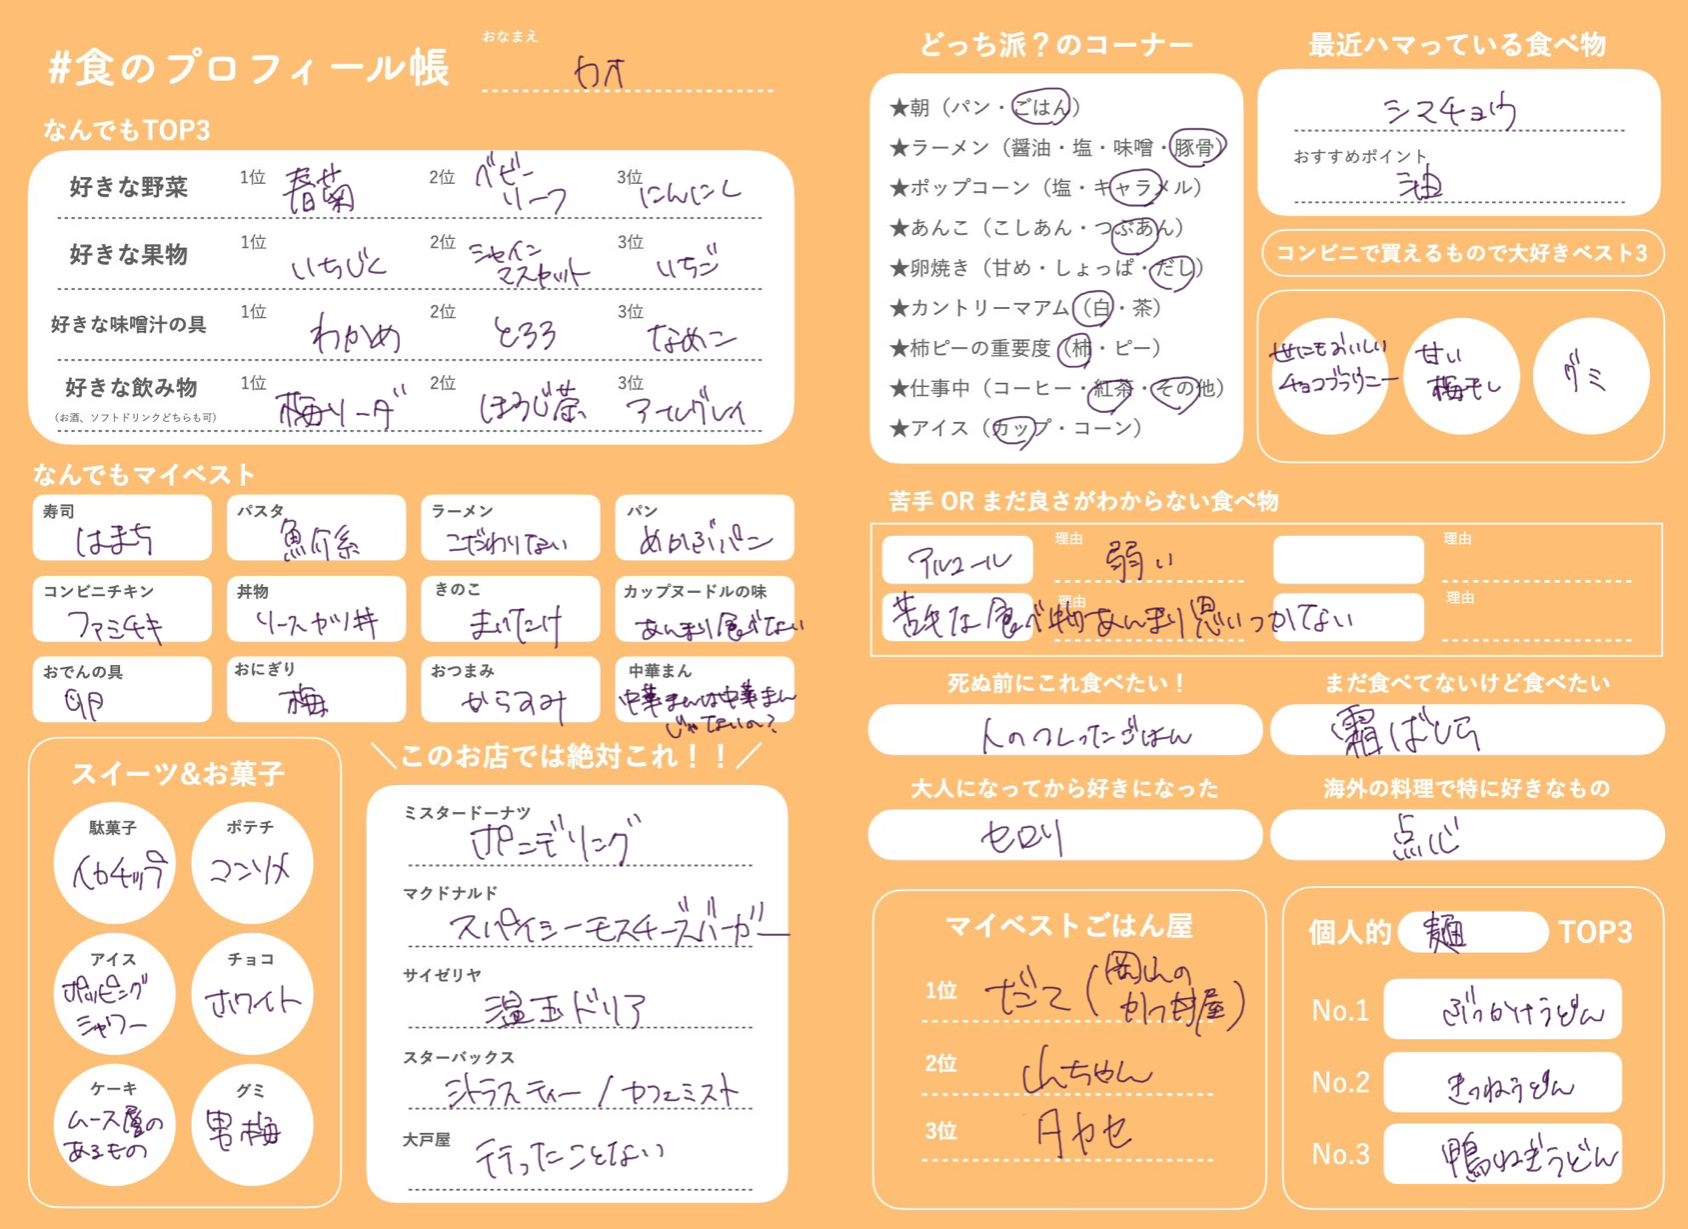 #食のプロフィール帳
おなまえ
カオ
なんでもTOP3
好きな野菜 1位 春菊 2位 ベビーリーフ 3位 にんにく
好きな果物 1位 いちじく 2位 シャインマスカット 3位 いちご
好きな味噌汁の具 1位 わかめ 2位 とろろ 3位 なめこ
好きな飲み物 1位 梅ソーダ 2位 ほうじ茶 3位 アールグレイ
(お酒、ソフトドリンクどちらも可)
なんでもマイベスト
寿司 はまち
パスタ 魚介系
ラーメン こだわりない
パン めかぶパン
コンビニチキン ファミチキ
丼物 ソースカツ丼
きのこ まいたけ
カップヌードルの味 あんまり食べてない
おでんの具 卵
おにぎり 梅
おつまみ からすみ
中華まん 中華まんは中華まん
じゃないの?
スイーツ&お菓子
駄菓子 イカチップ
ポテチ コンソメ
アイス ポッピング
シャワー
チョコ ホワイト
ケーキ ムース層の
あるもの
グミ 男梅
＼このお店では絶対これ！！／
ミスタードーナツ
ポンデリング
マクドナルド
スパイシーモスチーズバーガー
サイゼリヤ
温玉ドリア
スターバックス
シトラスティー / カフェミスト
大戸屋
行ったことない
どっち派？のコーナー
★朝（パン・ごはん）
★ラーメン（醤油・塩・味噌・豚骨）
★ポップコーン（塩・キャラメル）
★あんこ（こしあん・つぶあん）
★卵焼き（甘め・しょっぱ・だし）
★カントリーマアム（白・茶）
★柿ピーの重要度（柿・ピー）
★仕事中（コーヒー・紅茶・その他）
★アイス（カップ・コーン）
最近ハマっている食べ物
シマチョウ
おすすめポイント
油
コンビニで買えるもので大好きベスト3
世にもおいしい
チョコブラウニー
甘い
梅干し
グミ
苦手 OR まだ良さがわからない食べ物
アルコール 理由 弱い 理由
苦手な食べ物あんまり思いつかない
理由 理由
死ぬ前にこれ食べたい！
人のつくったごはん
まだ食べてないけど食べたい
霜ばしら
大人になってから好きになった
セロリ
海外の料理で特に好きなもの
点心
マイベストごはん屋
1位 だて(岡山の
かつ丼屋)
2位 山ちゃん
3位 月ヤセ
個人的 麺 TOP3
No.1 ぶっかけうどん
No.2 きつねうどん
No.3 鴨ねぎうどん